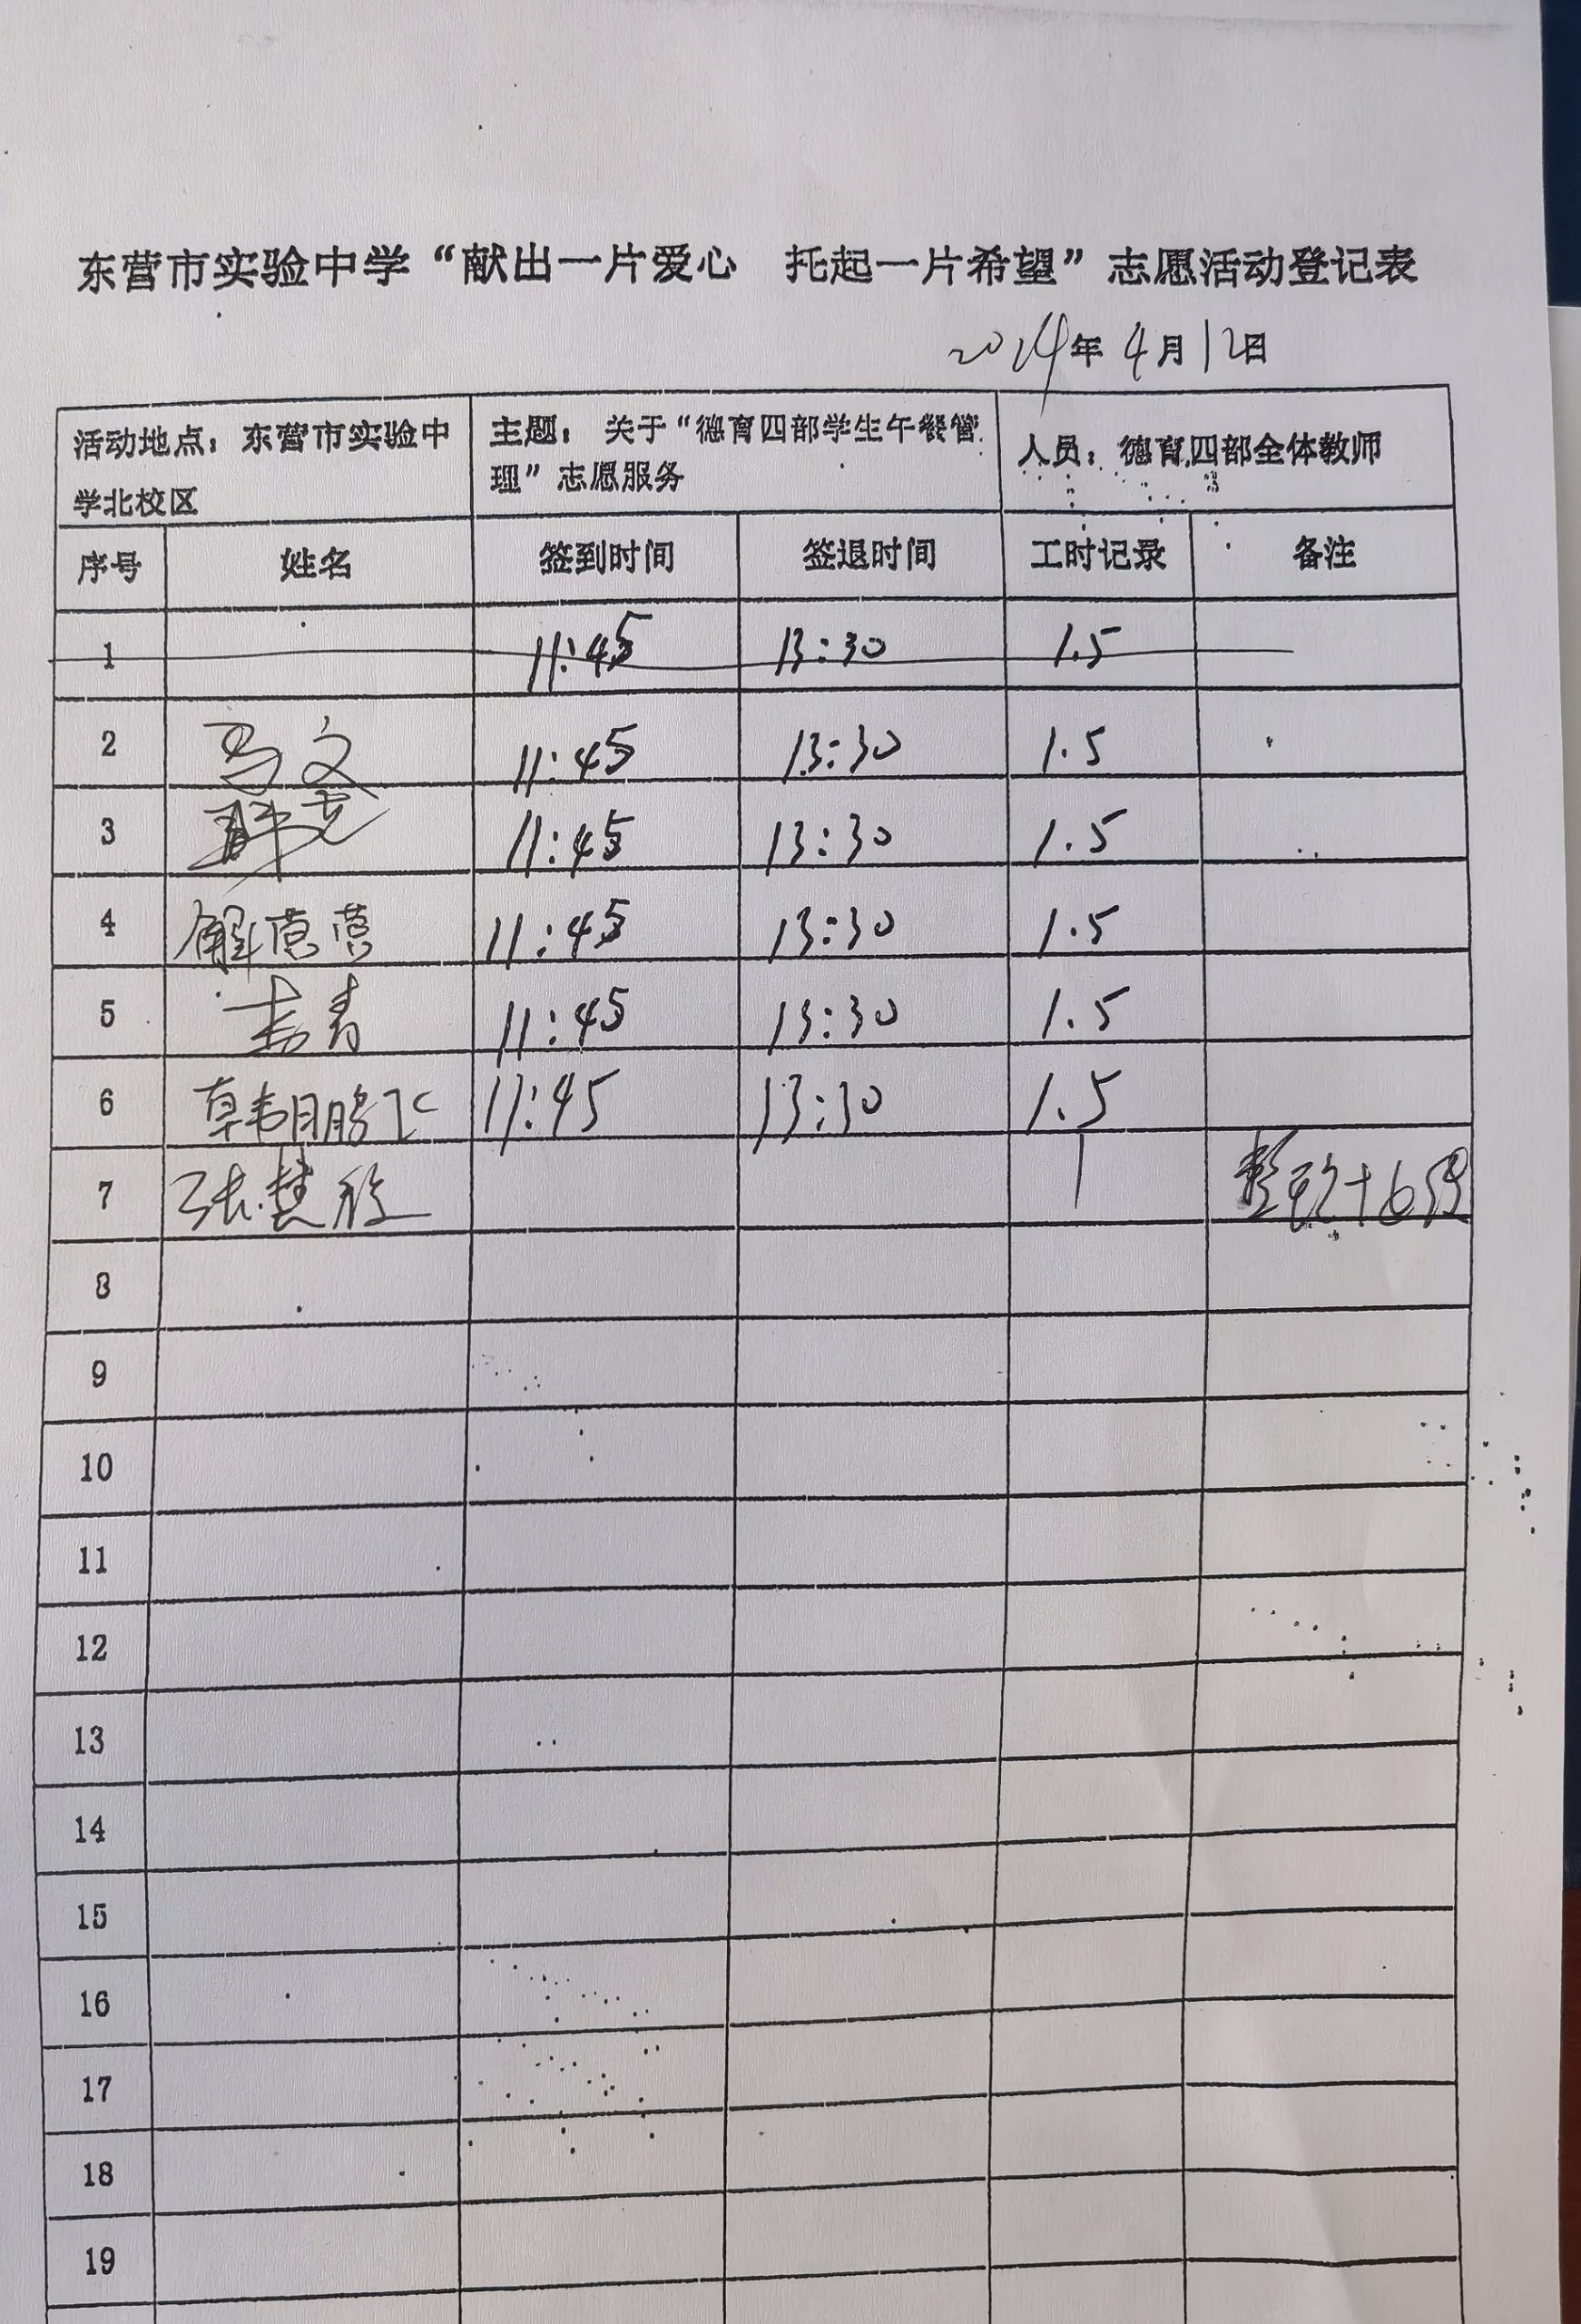 东营市实验中学“献出一片爱心 托起一片希望”志愿活动登记表
2024年4月12日
活动地点：东营市实验中
学北校区
主题：关于“德育四部学生午餐管
理”志愿服务
人员：德育四部全体教师
序号 姓名 签到时间 签退时间 工时记录 备注
1 11:45 13:30 1.5
2 马文 11:45 13:30 1.5
3 11:45 13:30 1.5
4 解蕙蕙 11:45 13:30 1.5
5 青 11:45 13:30 1.5
6 韩鹏飞 11:45 13:30 1.5
7 张慧 1
8
9
10
11
12
13
14
15
16
17
18
19